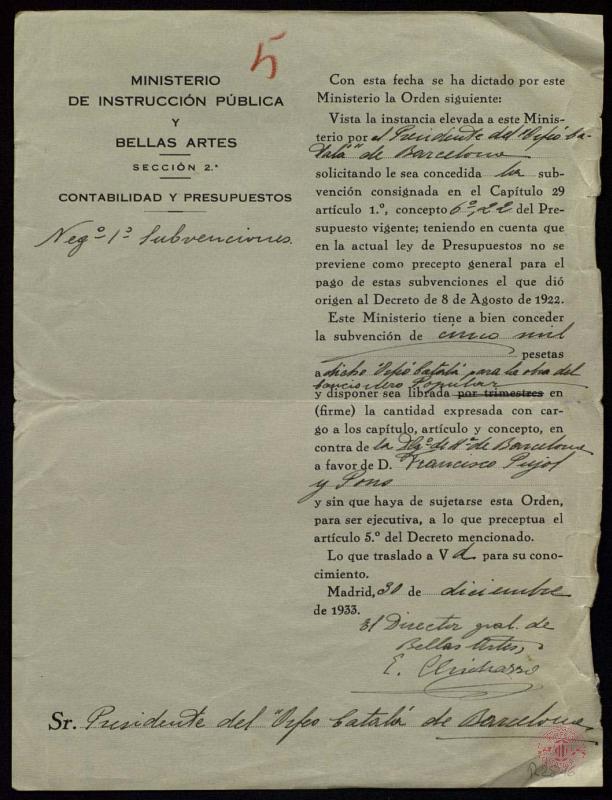 5
MINISTERIO
DE INSTRUCCIÓN PÚBLICA
Y
BELLAS ARTES
SECCIÓN 2.ª
CONTABILIDAD Y PRESUPUESTOS
Negº. 1º Subvenciones.
Con esta fecha se ha dictado por este
Ministerio la Orden siguiente:
Vista la instancia elevada a este Minis-
terio por el Presidente del "Orfeó Ca-
talá" de Barcelona
solicitando le sea concedida la sub-
vención consignada en el Capítulo 29
artículo 1.º, concepto 6º, 22 del Pre-
supuesto vigente; teniendo en cuenta que
en la actual ley de Presupuestos no se
previene como precepto general para el
pago de estas subvenciones el que dió
origen al Decreto de 8 de Agosto de 1922.
Este Ministerio tiene a bien conceder
la subvención de cinco mil
pesetas
a dicho "Orfeó Catalá" para la obra del
Cancionero Popular
y disponer sea librada por trimestres en
(firme) la cantidad expresada con car-
go a los capítulo, artículo y concepto, en
contra de la Dlgº. de Hª de Barcelona
a favor de D. Francisco Pujol
y Pons
y sin que haya de sujetarse esta Orden,
para ser ejecutiva, a lo que preceptua el
artículo 5.º del Decreto mencionado.
Lo que traslado a V d. para su cono-
cimiento.
Madrid, 30 de diciembre
de 1933.
El Director gral. de
Bellas Artes,
E. Chicharro
Sr. Presidente del "Orfeo Catalá" de Barcelona